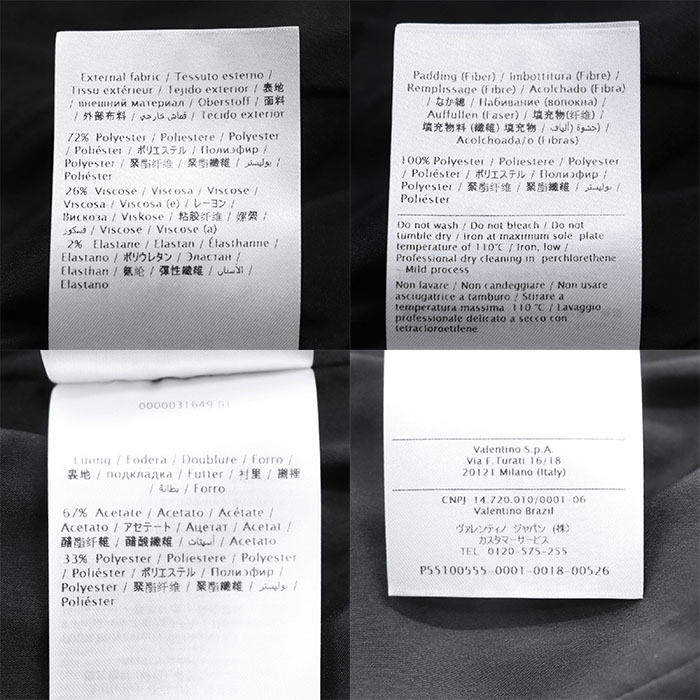 External fabric / Tessuto esterno /
Tissu extérieur / Tejido exterior / 表地
/ внешний материал / Oberstoff / 面料
/ 外部布料 / قماش خارجي / Tecido exterior
72% Polyester / Poliestere / Polyester
/ Poliéster / ポリエステル / Полиэфир /
Polyester / 聚酯纤维 / 聚酯纖維 / بوليستر /
Poliéster
26% Viscose / Viscosa / Viscose /
Viscosa / Viscosa (e) / レーヨン /
Вискоза / Viskose / 粘胶纤维 / 嫘縈 /
فسكوز / Viscose / Viscose (a)
2% Elastane / Elastan / Élasthanne /
Elastano / ポリウレタン / Эластан /
Elasthan / 氨纶 / 彈性纖維 / الأستان /
Elastano
Padding (Fiber) / Imbottitura (Fibre) /
Remplissage (Fibre) / Acolchado (Fibra)
/ なか綿 / Набивание (волокна) /
Auffullen (Faser) / 填充物(纤维) /
填充物料 (纖維) 填充物 / حشوة (ألياف) /
Acolchoada/o (Fibras)
100% Polyester / Poliestere / Polyester
/ Poliéster / ポリエステル / Полиэфир /
Polyester / 聚酯纤维 / 聚酯纖維 / بوليستر /
Poliéster
Do not wash / Do not bleach / Do not
tumble dry / Iron at maximum sole-plate
temperature of 110°C / Iron, low /
Professional dry cleaning in perchlorethene
- Mild process
Non lavare / Non candeggiare / Non usare
asciugatrice a tamburo / Stirare a
temperatura massima 110 °C / Lavaggio
professionale delicato a secco con
tetracloroetilene
0000031649 01
Lining / Fodera / Doublure / Forro /
裏地 / подкладка / Futter / 衬里 / 襯裡
/ بطانة / Forro
67% Acetate / Acetato / Acétate /
Acetato / アセテート / Ацетат / Acetat /
醋酯纤维 / 醋酸纖維 / أسيتات / Acetato
33% Polyester / Poliestere / Polyester
/ Poliéster / ポリエステル / Полиэфир /
Polyester / 聚酯纤维 / 聚酯纖維 / بوليستر /
Poliéster
Valentino S.p.A.
Via F.Turati 16/18
20121 Milano (Italy)
CNPJ 14.720.010/0001-06
Valentino Brazil
ヴァレンティノ ジャパン (株)
カスタマーサービス
TEL 0120-575-255
P55100555-0001-0018-00526